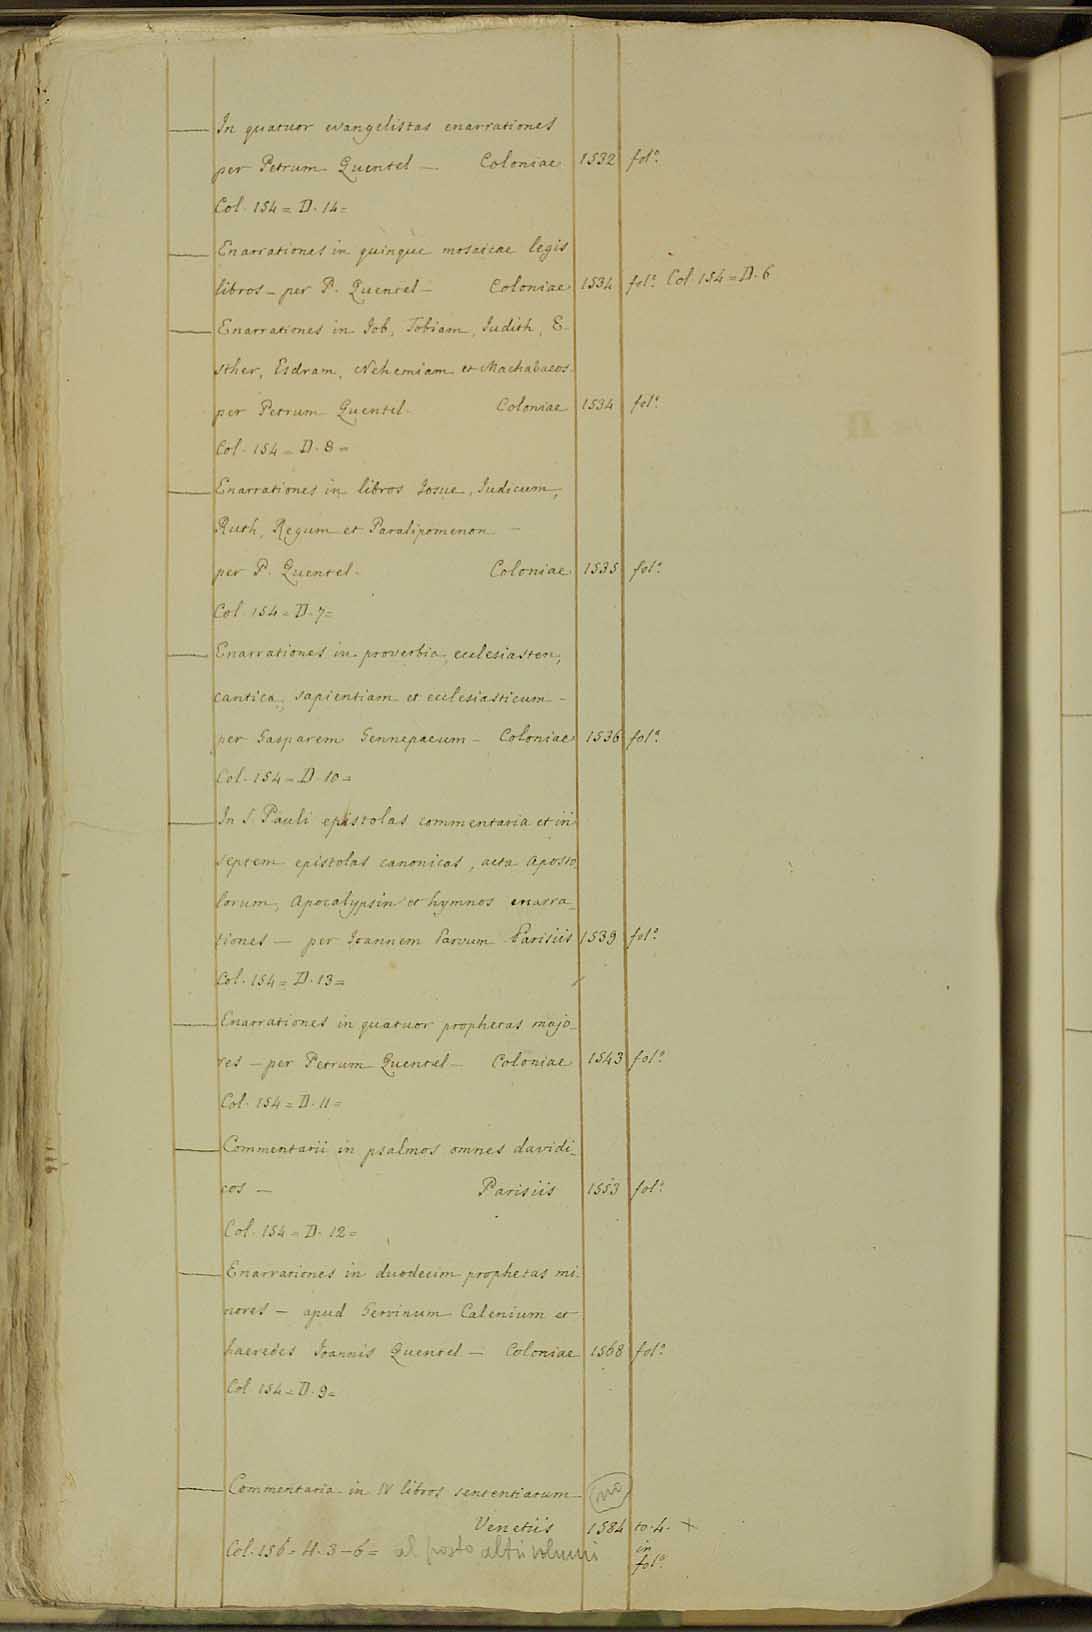 — In quatuor evangelistas enarrationes
per Petrum Quentel — Coloniae 1532 folº
Col. 154 = D. 14 =
— Enarrationes in quinque mosaicae legis
libros — per P. Quentel — Coloniae 1534 folº Col. 154 = D. 6
— Enarrationes in Job, Tobiam, Judith, E-
sther, Esdram, Nehemiam et Machabaeos
per Petrum Quentel. Coloniae 1534 folº
Col. 154 = D. 8 =
— Enarrationes in libros Josue, Judicum,
Ruth, Regum et Paralipomenon —
per P. Quentel. Coloniae 1535 folº
Col. 154 = D. 7 =
— Enarrationes in proverbia, ecclesiasten,
cantica, sapientiam et ecclesiasticum —
per Gasparem Gennepaeum — Coloniae 1536 folº
Col. 154 = D. 10 =
— In S. Pauli epistolas commentaria et in
septem epistolas canonicas, acta Aposto-
lorum, Apocalypsin et hymnos enarra-
tiones — per Joannem Parvum Parisiis 1539 folº
Col. 154 = D. 13 =
— Enarrationes in quatuor prophetas majo-
res — per Petrum Quentel — Coloniae 1543 folº
Col. 154 = D. 11 =
— Commentarii in psalmos omnes davidi-
cos — Parisiis 1553 folº
Col. 154 = D. 12 =
— Enarrationes in duodecim prophetas mi-
nores — apud Gervinum Calenium et
haeredes Joannis Quentel — Coloniae 1568 folº
Col. 154 = D. 9 =
— Commentaria in IV libros sententiarum no
Venetiis 1584 to. 4. +
in
folº
Col. 156 = H. 3 – 6 = al posto altri volumi